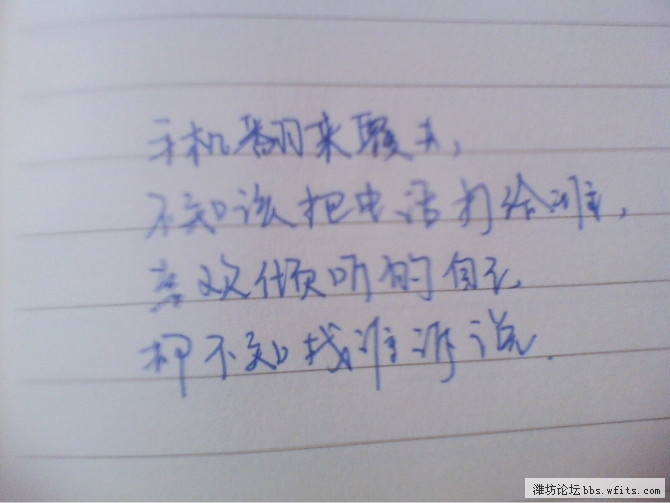 手机翻来覆去,
不知该把电话打给谁,
喜欢倾听的自己,
却不知找谁诉说.
潍坊论坛bbs.wfits.com